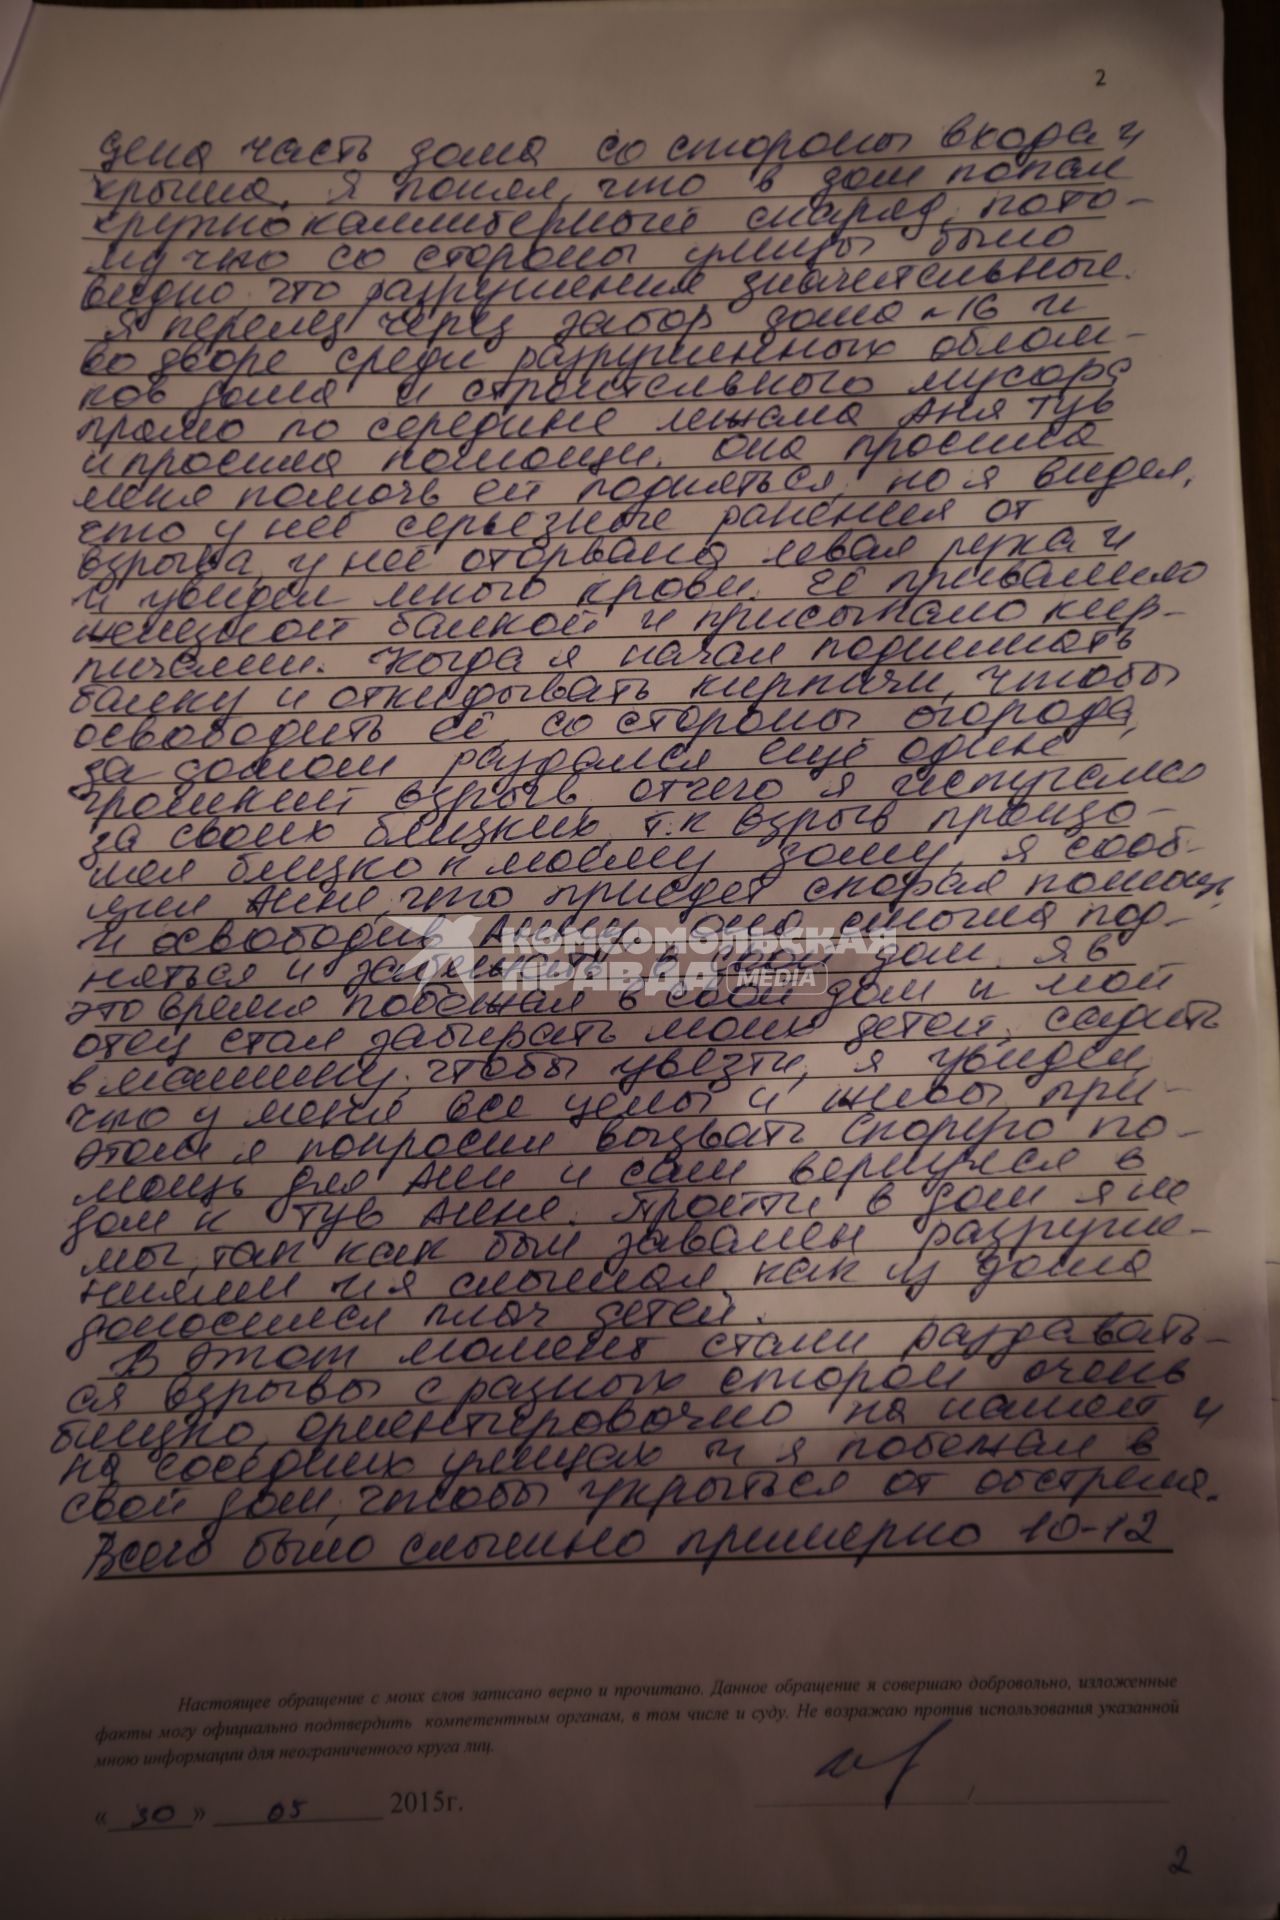 2
дена часть дома со стороны входа и
крыша. Я понял, что в дом попал
крупнокалиберный снаряд, пото-
му что со стороны улицы было
видно, что разрушения значительные.
Я перелез через забор дома № 16 и
во дворе среди разрушенных облом-
ков дома и строительного мусора
прямо по середине лежала Аня Тув
и просила помощи. Она просила
меня помочь ей подняться, но я видел,
что у неё серьезные ранения от
взрыва, у неё оторвана левая рука и
и увидел много крови. Её привалило
железной балкой и присыпало кир-
пичами. Когда я начал поднимать
балку и откидывать кирпичи, чтобы
освободить её, со стороны огорода,
за домом раздался ещё один
громкий взрыв отчего я испугался
за своих близких, т.к взрыв произо-
шел близко к моему дому, я сооб-
щил Анне, что приедет скорая помощь
и освободив Анну, она смогла под-
няться и забежать в свой дом. Я в
это время побежал в свой дом и мой
отец стал забирать моих детей, садить
в машину, чтобы увезти, я увидел,
что у меня все целы и живы, при-
этом я попросил вызвать скорую по-
мощь для Ани и сам вернулся в
дом к Тув Анне. Пройти в дом я не
мог, так как был завален разруше-
ниями и я слышал как из дома
доносился плач детей.
В этот момент стали раздавать-
ся взрывы с разных сторон очень
близко, ориентировочно на нашей и
на соседних улицах и я побежал в
свой дом, чтобы укрыться от обстрела.
Всего было слышно примерно 10-12
КОМСОМОЛЬСКАЯ
ПРАВДА MEDIA
Настоящее обращение с моих слов записано верно и прочитано. Данное обращение я совершаю добровольно, изложенные
факты могу официально подтвердить компетентным органам, в том числе и суду. Не возражаю против использования указанной
мною информации для неограниченного круга лиц.
« 30 » 05 2015г. /
2